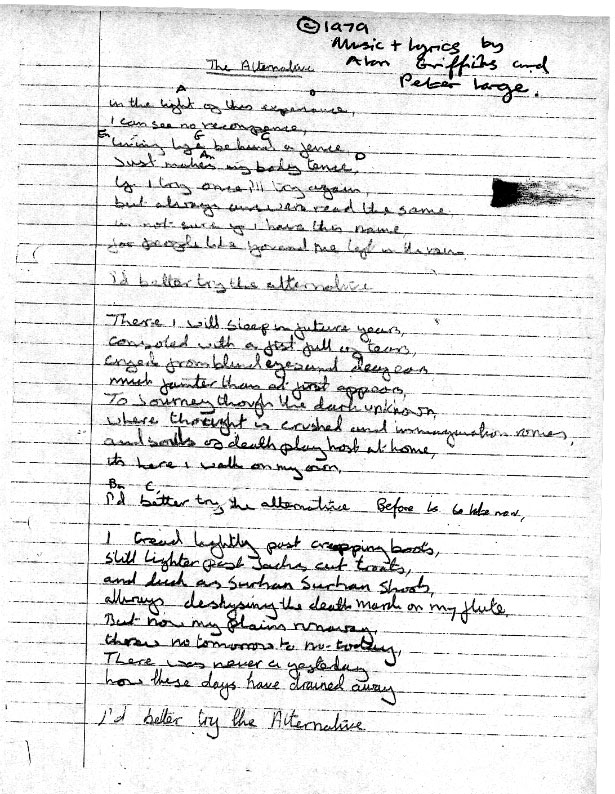 ©1979
Music + lyrics by
Alan Griffiths and
Peter Large.
The Alternative
A D
in the light of this experience,
I can see no recompence,
Em G C
living life behind a fence
Am D
Just makes my body tence,
if I try once I'll try again,
but always answers read the same,
im not sure if I have this name
for people like you and me left in the rain
I'd better try the alternative
There I will sleep in future years,
consoled with a fist full of tears,
cryed from blind eyes and deaf ears
much fainter than at first appears,
To Journey though the dark unknown,
where thought is crushed and immagination romes,
and souls of death play host at home,
its here I walk on my own,
Bm C
I'd better try the alternative Before its to late now,
I tread lightly past creeping boots,
still lighter past Jacks cut troats,
and duck as Surhan Surhan Shoots,
always the death march on my flute,
But now my runaway,
theres no tomorrow to no today,
There was never a yesterday
how these days have drained away
I'd better try the Alternative